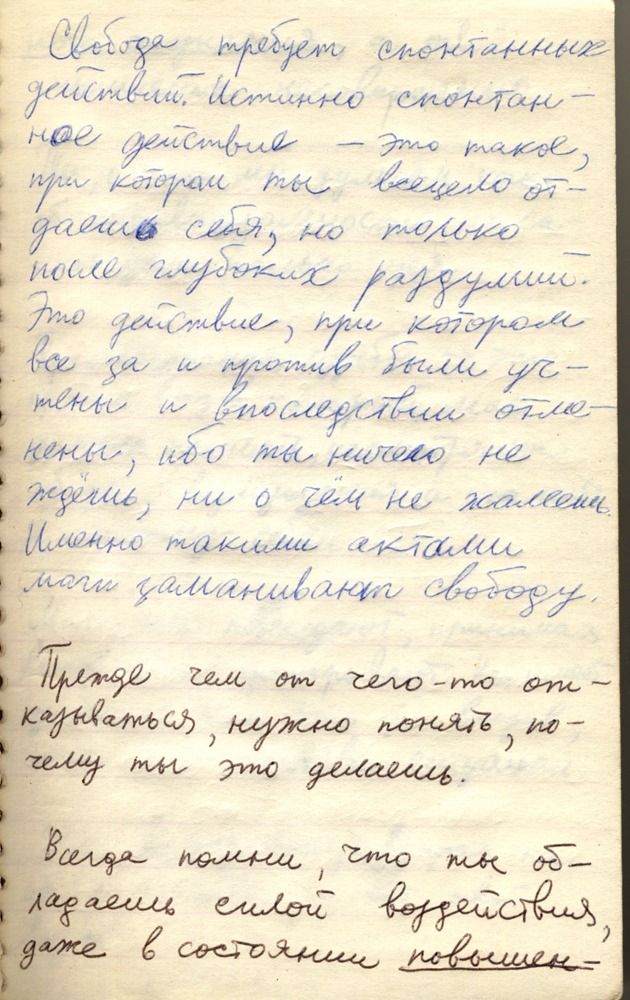 Свобода требует спонтанных
действий. Истинно спонтан-
ное действие – это такое,
при котором ты всецело от-
даешь себя, но только
после глубоких раздумий.
Это действие, при котором
все за и против были уч-
тены и впоследствии отме-
нены, ибо ты ничего не
ждёшь, ни о чём не жалеешь.
Именно такими актами
маги заманивают свободу.
Прежде чем от чего-то от-
казываться, нужно понять, по-
чему ты это делаешь.
Всегда помни, что ты об-
ладаешь силой воздействия,
даже в состоянии повышен-